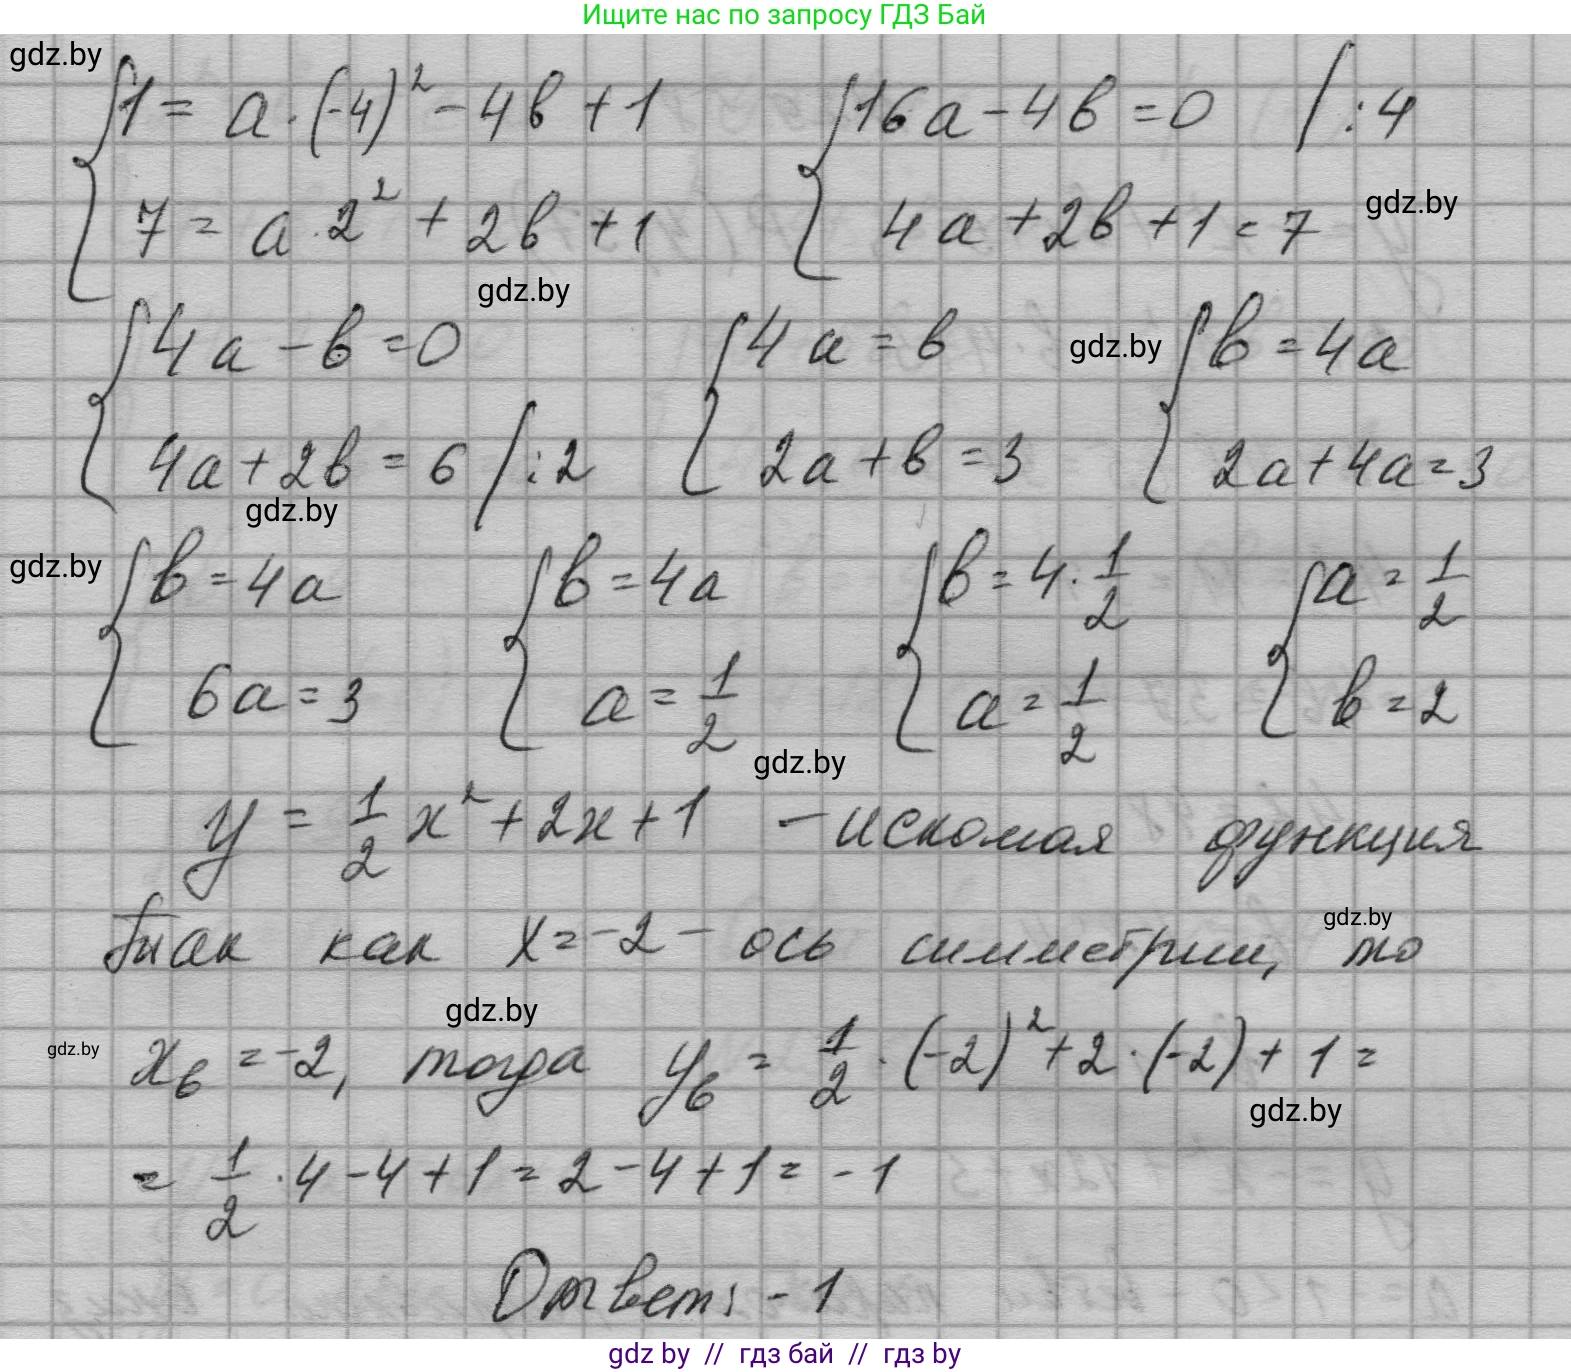 Ищите нас по запросу ГДЗ Бай
gdz.by
{ 1 = a · (-4)² - 4b + 1 { 16a - 4b = 0 | :4
7 = a · 2² + 2b + 1 4a + 2b + 1 = 7
gdz.by
gdz.by
{ 4a - b = 0 { 4a = b { b = 4a
gdz.by
4a + 2b = 6 | :2 2a + b = 3 2a + 4a = 3
gdz.by
gdz.by
{ b = 4a { b = 4a { b = 4 · 1/2 { a = 1/2
6a = 3 a = 1/2 a = 1/2 b = 2
gdz.by
y = 1/2 x² + 2x + 1 - искомая функция
gdz.by
Так как x = -2 - ось симметрии, то
gdz.by
gdz.by
xв = -2, тогда yв = 1/2 · (-2)² + 2 · (-2) + 1 =
gdz.by
= 1/2 · 4 - 4 + 1 = 2 - 4 + 1 = -1
Ответ: -1
gdz by // гдз бай // гдз by